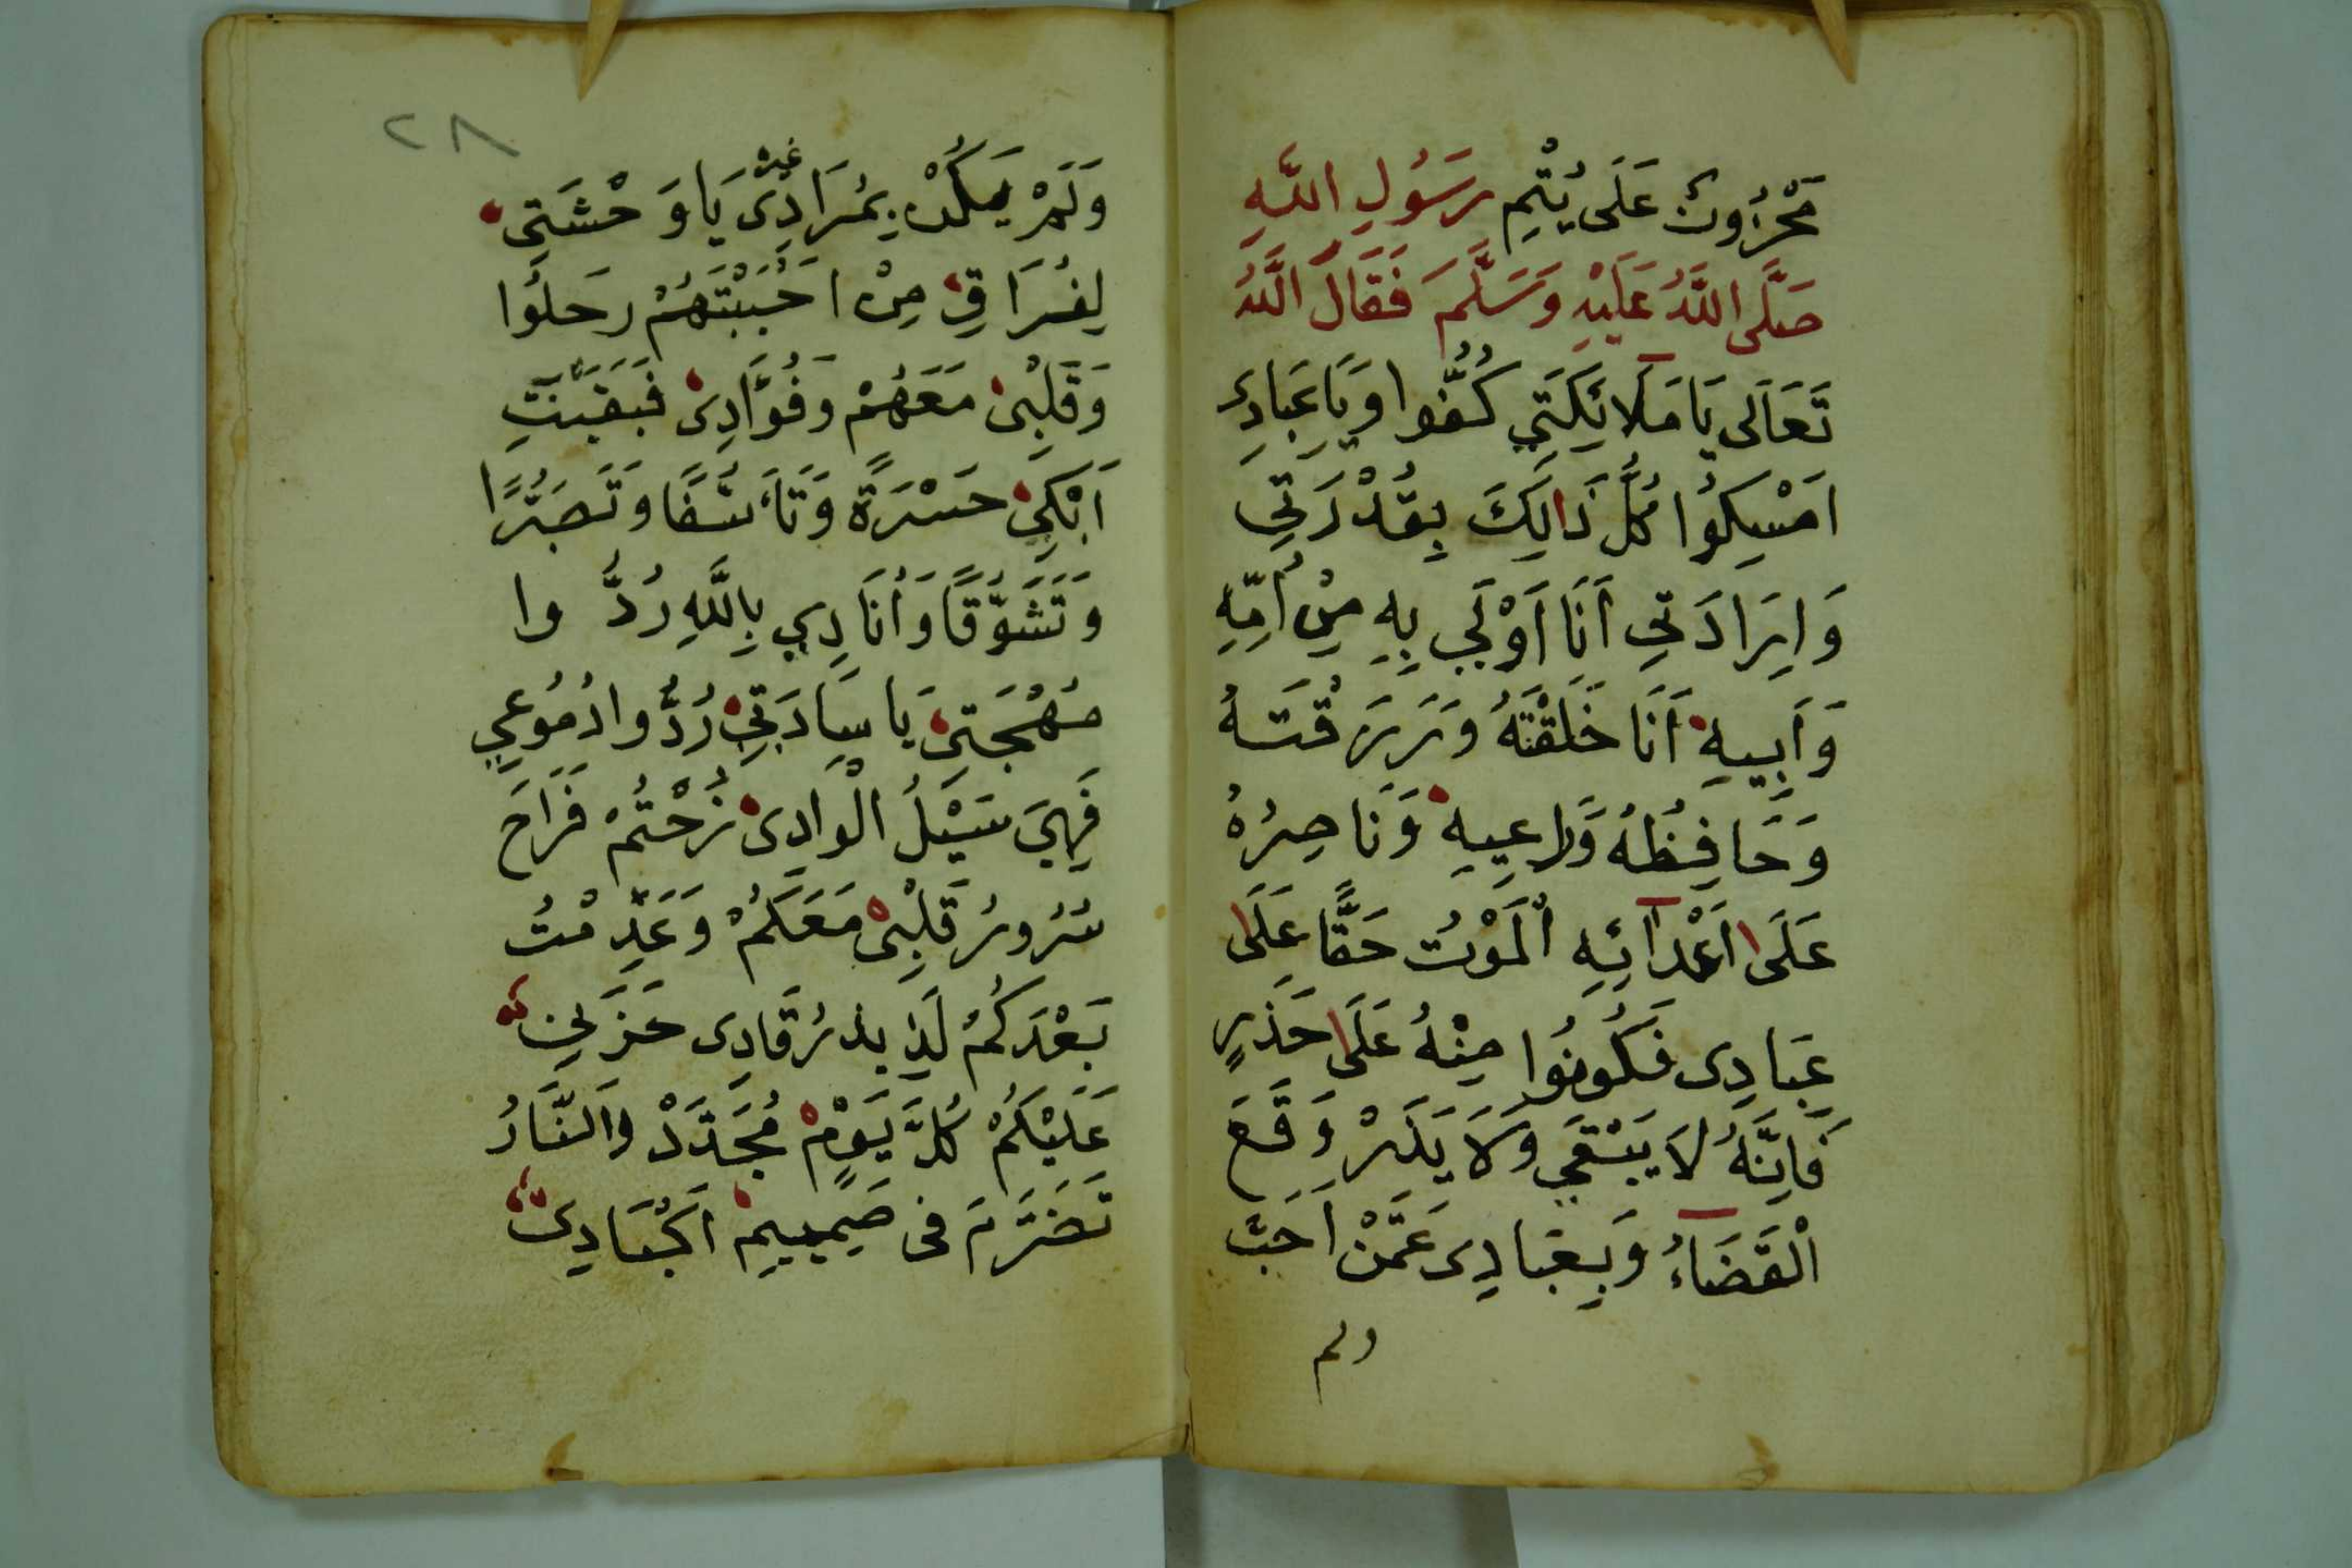 مَحْزُونٌ عَلَى يُتْمِ رَسُولِ اللَّهِ
صَلَّى اللَّهُ عَلَيْهِ وَسَلَّمَ فَقَالَ اللَّهُ
تَعَالَى يَا مَلَائِكَتِي كُفُّوا وَيَا عِبَادِي
امْسِكُوا كُلَّ ذَالِكَ بِقُدْرَتِي
وَاِرَادَتِي اَنَا اَوْلَى بِهِ مِنْ اُمِّهِ
وَاَبِيهِ اَنَا خَلَقْتَهُ وَرَزَقْتَهُ
وَحَافِظُهُ وَرَاعِيهِ وَنَاصِرُهُ
عَلَى اَعْدَآئِهِ الْمَوْتُ حَقًّا عَلَى
عِبَادِى فَكُونُوا مِنْهُ عَلَى حَذَرٍ
فَاِنَّهُ لَا يَبْقَى وَلَا يَذَرْ وَقَعَ
الْقَضَاءُ وَبِعِبَادِى عَمَّنْ اَحَبَّ
ولم
٢٨
غير
وَلَمْ يَكُنْ بِمُرَادِى يَا وَحْشَتِى
لِفُرَاقِى مِنْ احْبَبْتَهُمْ رَحَلُوا
وَقَلْبِى مَعَهُمْ وَفُؤَادِى فَبَقَيْتُ
اَبْكِى حَسْرَةً وَتَأَسُّفًا وَتَصَبُّرًا
وَتَشَوُّقًا وَأُنَادِي بِاللَّهِ رُدُّوا
مُهْجَتِى يَا سَادَتِى رُدُّوا دُمُوعِي
فَهِيَ سَيْلُ الْوَادِى نَزَحْتُمْ فَرَاحَ
سُرُورُ قَلْبِى مَعَكُمْ وَعَدِمْتُ
بَعْدَكُمْ لَذِيذ رُقَادِى حَزَنِى
عَلَيْكُمْ كُلَّ يَوْمٍ مُجَدَّدْ وَالنَّارُ
تَضَرَّمَ فى صَمِيمِ اكْبَادِى